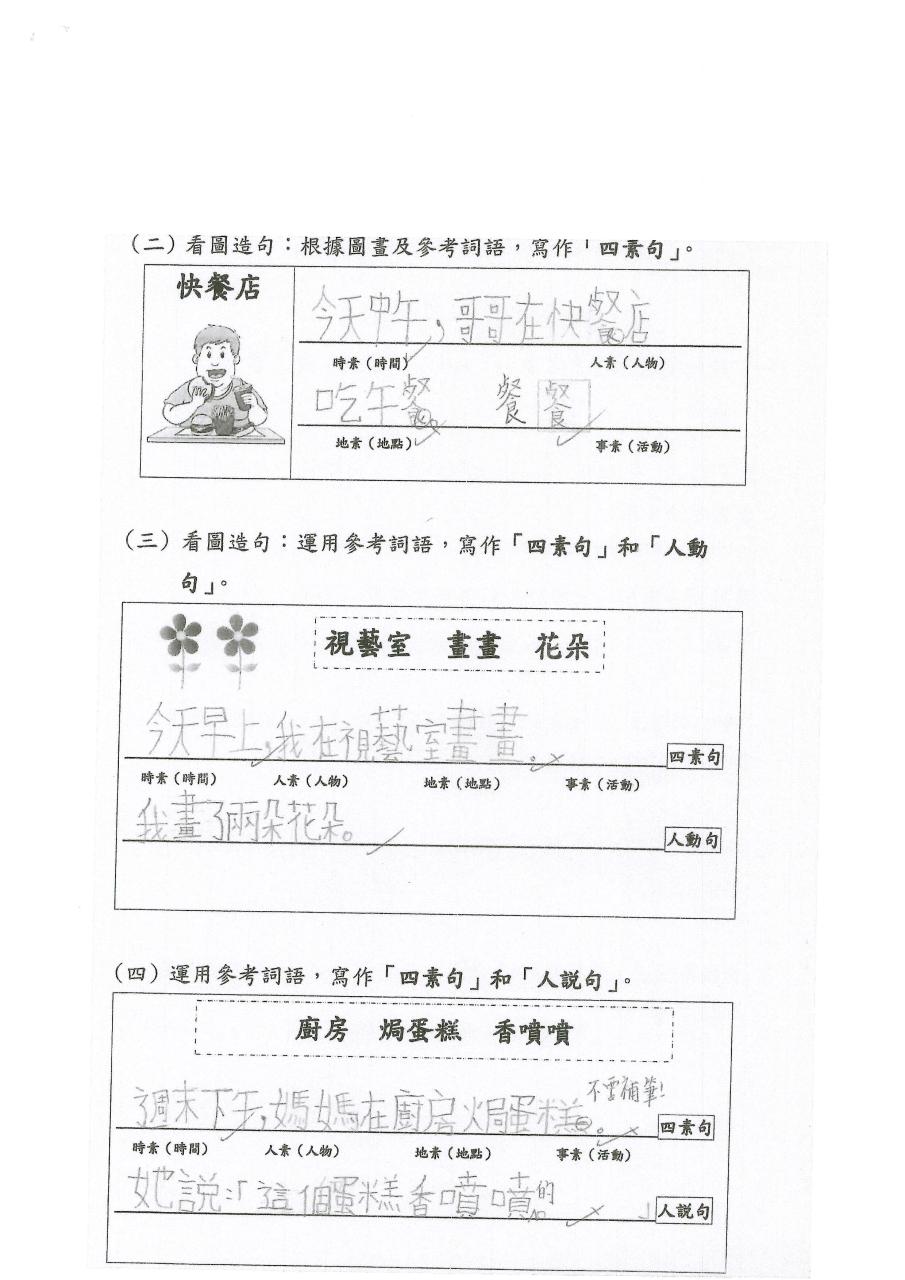 （二）看圖造句：根據圖畫及參考詞語，寫作「四素句」。
快餐店
今天中午，哥哥在快餐店
時素（時間） 人素（人物）
吃午餐。 餐 餐
地素（地點） 事素（活動）
（三）看圖造句：運用參考詞語，寫作「四素句」和「人動
句」。
視藝室 畫畫 花朵
今天早上，我在視藝室畫畫。 四素句
時素（時間） 人素（人物） 地素（地點） 事素（活動）
我畫了兩朵花朵。 人動句
（四）運用參考詞語，寫作「四素句」和「人說句」。
廚房 焗蛋糕 香噴噴
不需補筆！
週末下午，媽媽在廚房焗蛋糕。 四素句
時素（時間） 人素（人物） 地素（地點） 事素（活動）
她說：「這個蛋糕香噴噴的。」 人說句